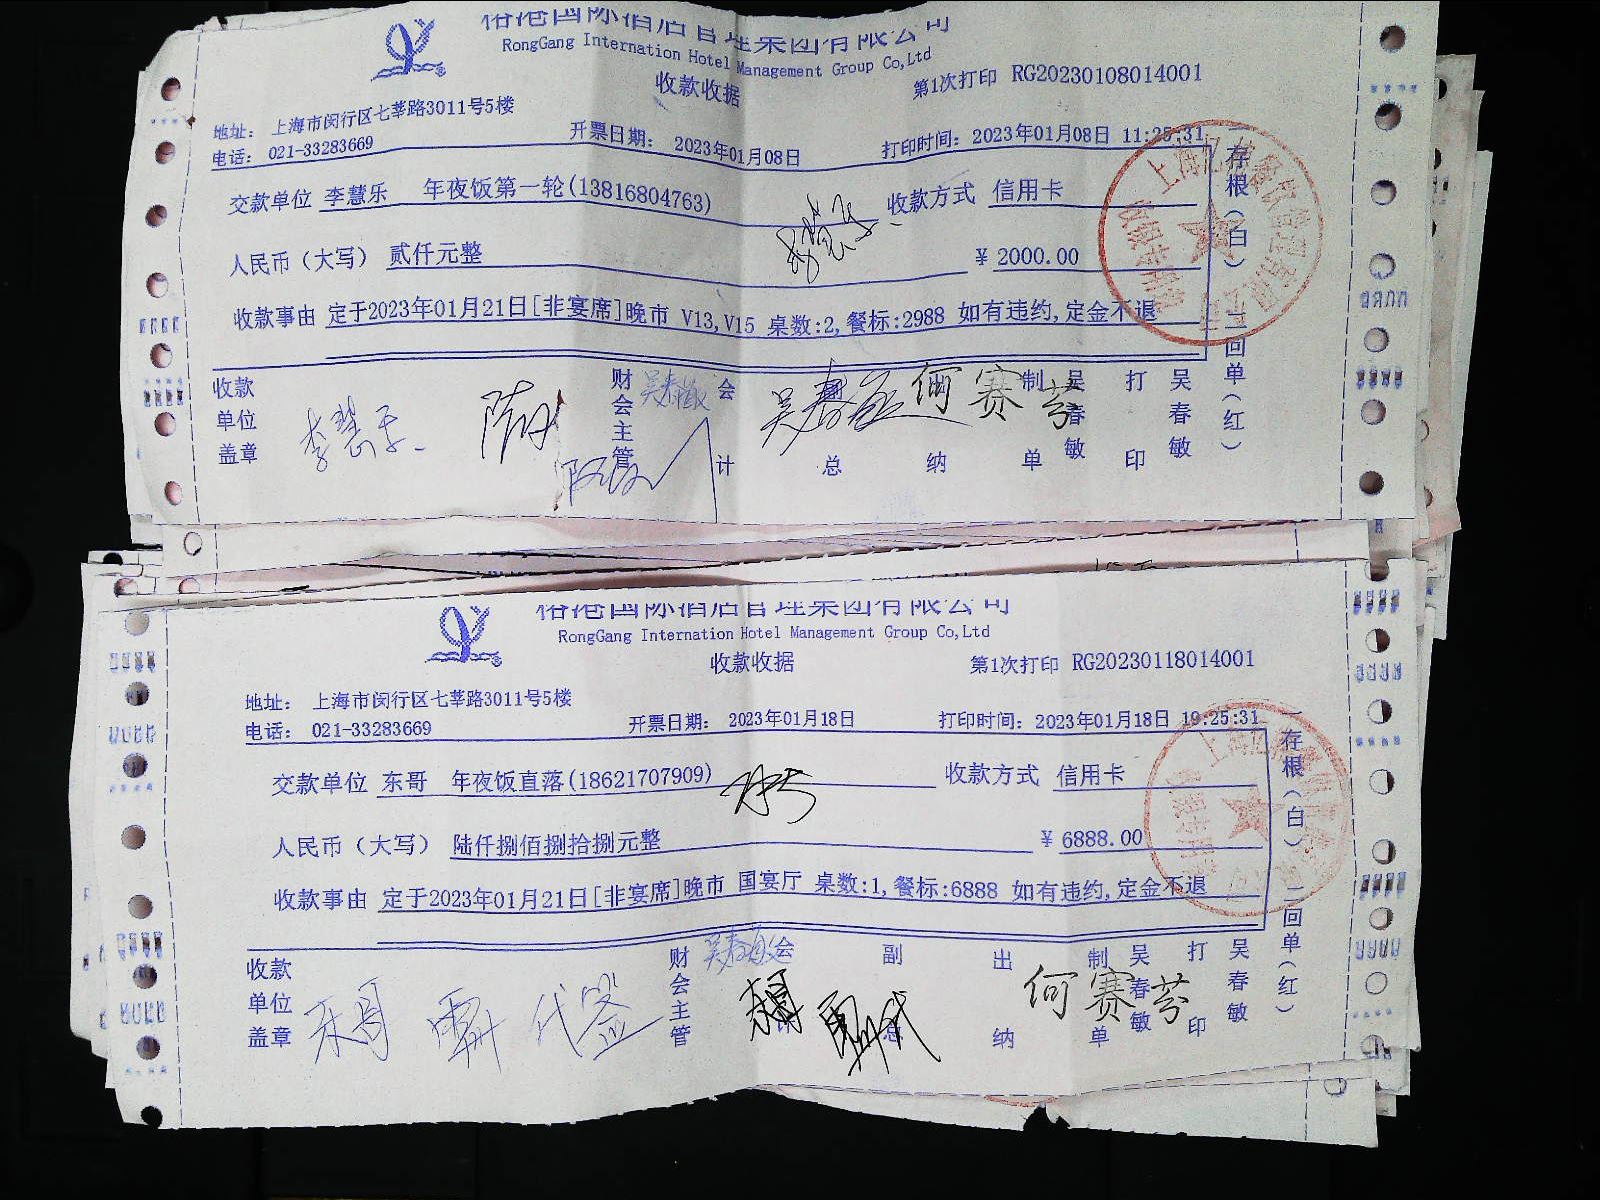 裕港国际酒店管理集团有限公司
RongGang Internation Hotel Management Group Co,Ltd
收款收据
第1次打印 RG20230108014001
地址： 上海市闵行区七莘路3011号5楼
电话： 021-33283669
开票日期： 2023年01月08日
打印时间：2023年01月08日 11:25:31
交款单位 李慧乐 年夜饭第一轮(13816804763)
收款方式 信用卡
人民币（大写） 贰仟元整
¥ 2000.00
收款事由 定于2023年01月21日[非宴席]晚市 V13,V15 桌数:2,餐标:2988 如有违约,定金不退
一存根（白）二回单（红）
收款单位盖章
李慧乐
财会主管
吴春敏
会计
吴春敏
总
纳
何赛芬
制单
吴春敏
打印
吴春敏
裕港国际酒店管理集团有限公司
RongGang Internation Hotel Management Group Co,Ltd
收款收据
第1次打印 RG20230118014001
地址： 上海市闵行区七莘路3011号5楼
电话： 021-33283669
开票日期： 2023年01月18日
打印时间：2023年01月18日 19:25:31
交款单位 东哥 年夜饭直落(18621707909)
收款方式 信用卡
人民币（大写） 陆仟捌佰捌拾捌元整
¥ 6888.00
收款事由 定于2023年01月21日[非宴席]晚市 国宴厅 桌数:1,餐标:6888 如有违约,定金不退
一存根（白）二回单（红）
收款单位盖章
代签
财会主管
吴春敏
会
副总
出纳
何赛芬
制单
吴春敏
打印
吴春敏